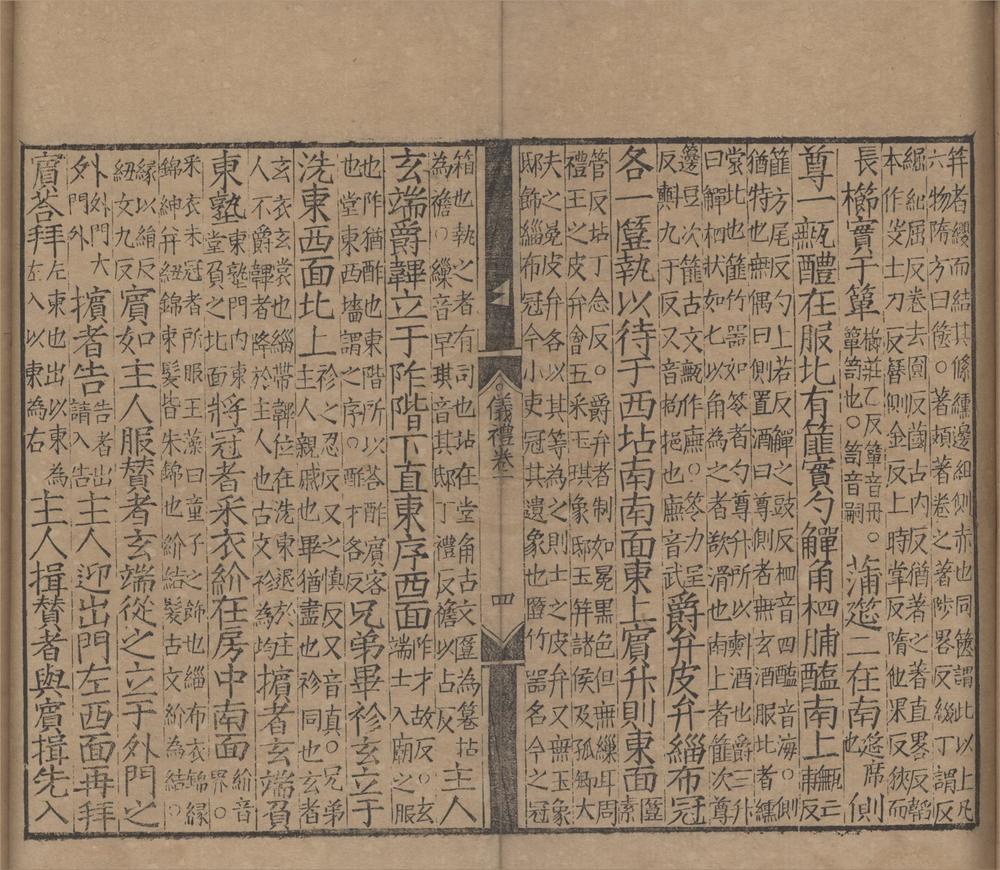 笄者纓而結其絛纁邊組側赤也同篋謂此以上凡
六物隋方曰篋○著頍著卷之著陟畧反纚丁謂反
屈反卷去圓反薗古内反猶著之著直畧反韜
本作弢士刀反簪側金反上時掌反隋他果反狹而
長櫛實于簞櫛莊乙反簞音丹。簞笥也。笥音嗣蒲筵二在南筵席也側
尊一甒醴在服北有篚實勺觶角柶脯醢南上甒亡甫反
篚方尾反勺上若反觶之豉反柶音四醢音海。側
猶特也無偶曰側置酒曰尊側者無玄酒服北者纁
裳北也篚竹器如笭者勺尊升所以㪺酒也爵三升
曰觶柶狀如匕以角為之者欲滑也南上者篚次尊
籩豆次篚古文甒作廡。笭力呈
反㪺九于反又音拘挹也廡音武爵弁皮弁緇布冠
各一匴執以待于西坫南南面東上賓升則東面匴素
管反坫丁念反。爵弁者制如冕黑色但無繅耳周
禮王之皮弁會五采玉琪象邸玉笄諸侯及孤卿大
夫之冕皮弁各以其等為之則士之皮弁又無玉象
邸飾緇布冠今小吏冠其遺象也匴竹器名今之冠
儀禮卷一
四
箱也執之者有司也坫在堂角古文匴為篹坫
為襜○繅音早琪音其邸丁禮反襜以占反主人
玄端爵韠立于阼階下直東序西面阼才故反。玄端士入廟之服
也阼猶酢也東階所以荅酢賓客
也堂東西牆謂之序。酢才各反兄弟畢袗玄立于
洗東西面北上袗之忍反又之慎反又音真。兄弟主人親戚也畢猶盡也袗同也玄者
玄衣玄裳也緇帶韠位在洗東退於主
人不爵韠者降於主人也古文袗為均擯者玄端負
東塾東塾門内東堂負之北面將冠者采衣紒在房中南面紒音界。
采衣未冠者所服玉藻曰童子之飾也緇布衣錦緣
錦紳并紐錦束髮皆朱錦也紒結髮古文紒為結○
緣以絹反紐女九反賓如主人服贊者玄端從之立于外門之
外外門大門外擯者告告者出請入告主人迎出門左西面再拜
賓荅拜左東也出以東為左入以東為右主人揖贊者與賓揖先入